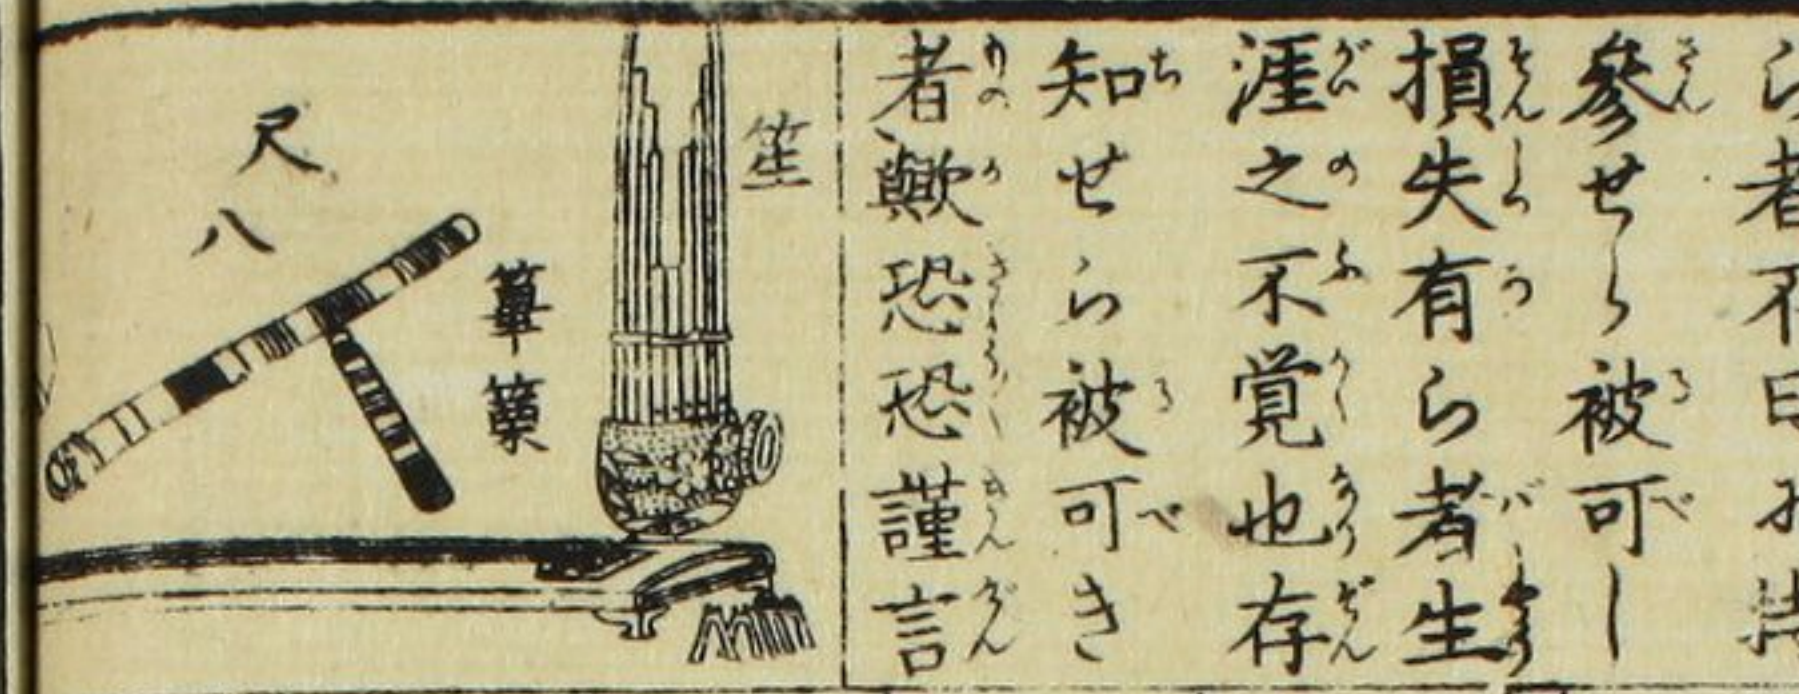 ら者不日
參せら被可し
損失有ら者生
涯之不覚也存
知せら被可き
者歟恐恐謹言
笙
篳篥
尺八